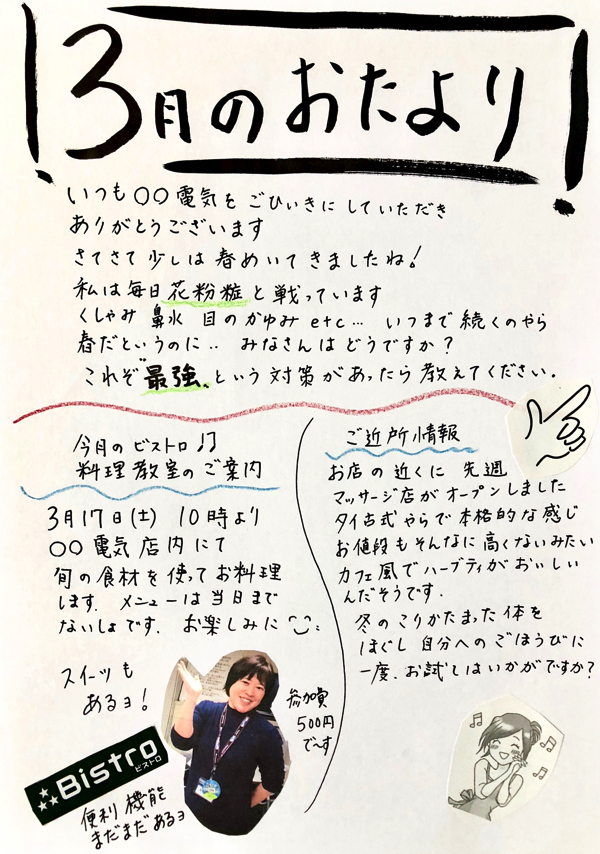 3月のおたより
いつも〇〇電気をごひいきにしていただき
ありがとうございます
さてさて少しは春めいてきましたね!
私は毎日花粉症と戦っています
くしゃみ 鼻水 目のかゆみ etc… いつまで続くのやら
春だというのに‥ みなさんはどうですか?
これぞ"最強"という対策があったら教えてください.
今月のビストロ♫
料理教室のご案内
3月17日(土) 10時より
〇〇電気店内にて
旬の食材を使ってお料理
します. メニューは当日まで
ないしょです. お楽しみに
スイーツも
あるヨ!
参加費
500円
で〜す
★★★Bistro
ビストロ
便利機能
まだまだあるヨ
ご近所情報
お店の近くに先週
マッサージ店がオープンしました
タイ古式やらで本格的な感じ
お値段もそんなに高くないみたい
カフェ風でハーブティがおいしい
んだそうです.
冬のこりかたまった体を
ほぐし自分へのごほうびに
一度.お試しはいかがですか?